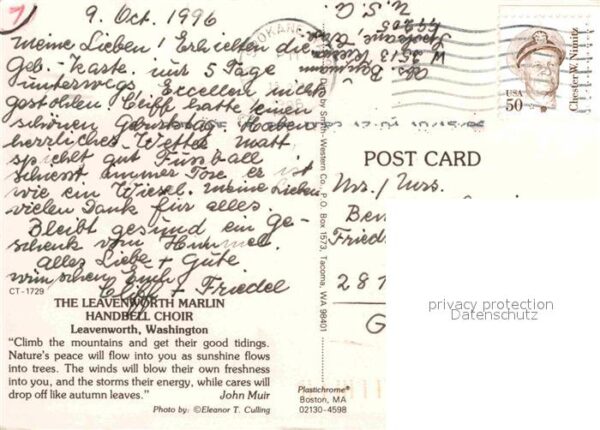 9. Oct. 1996
Meine Lieben! Erhielten die
Geb.-Karte. nur 5 Tage
unterwegs. Excellen nicht
gestohlen. Cliff hatte einen
schönen Geburtstag. Haben
herrliches Wetter. Matt
spielt gut Fussball
schiesst immer Tore, er ist
wie ein Wiesel. Meine Lieben
vielen Dank für alles.
Bleibt gesund ein Ge-
schenk vom Himmel.
alles Liebe + Gute
wünschen Euch
Cliff + Friedel
CT-1729
THE LEAVENWORTH MARLIN
HANDBELL CHOIR
Leavenworth, Washington
“Climb the mountains and get their good tidings.
Nature's peace will flow into you as sunshine flows
into trees. The winds will blow their own freshness
into you, and the storms their energy, while cares will
drop off like autumn leaves.” John Muir
Photo by: ©Eleanor T. Culling
by Smith-Western Co., P.O. Box 1573, Tacoma, WA 98401
Plastichrome®
Boston, MA
02130-4598
SPOKANE
Abs.
W 3513
99205
U.S.A
USA
50
Chester W. Nimitz
POST CARD
Mrs./Mrs.
Ben
Fried
287
G
privacy protection
Datenschutz